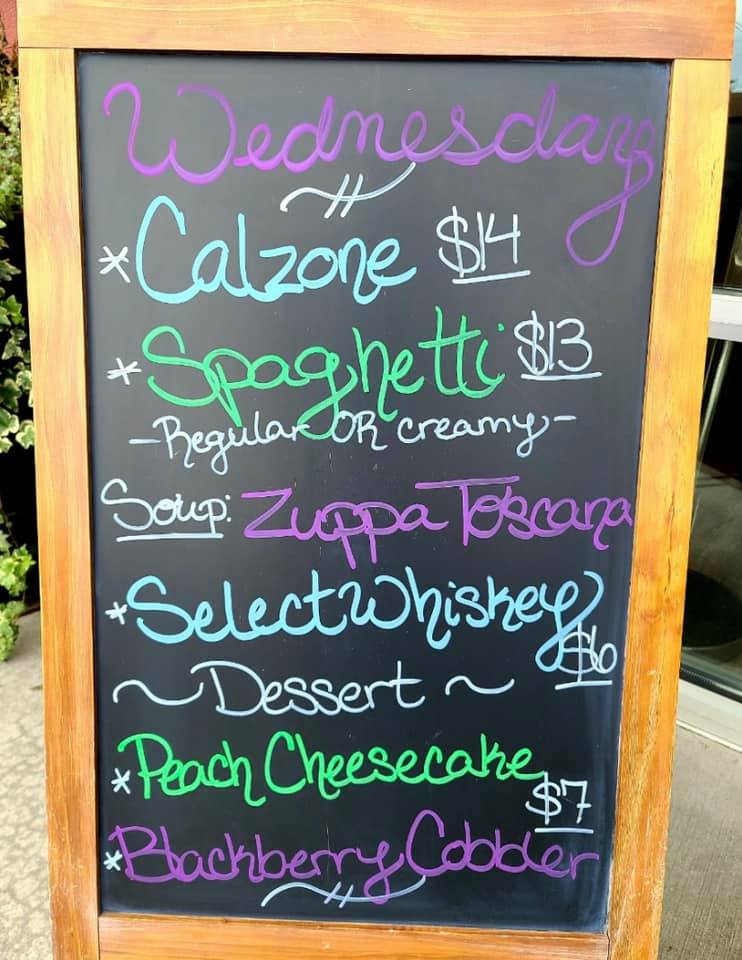 Wednesday
*Calzone $14
*Spaghetti $13
-Regular OR creamy-
Soup: Zuppa Toscana
*Select Whiskey $6
~Dessert~
*Peach Cheesecake
$7
*Blackberry Cobbler